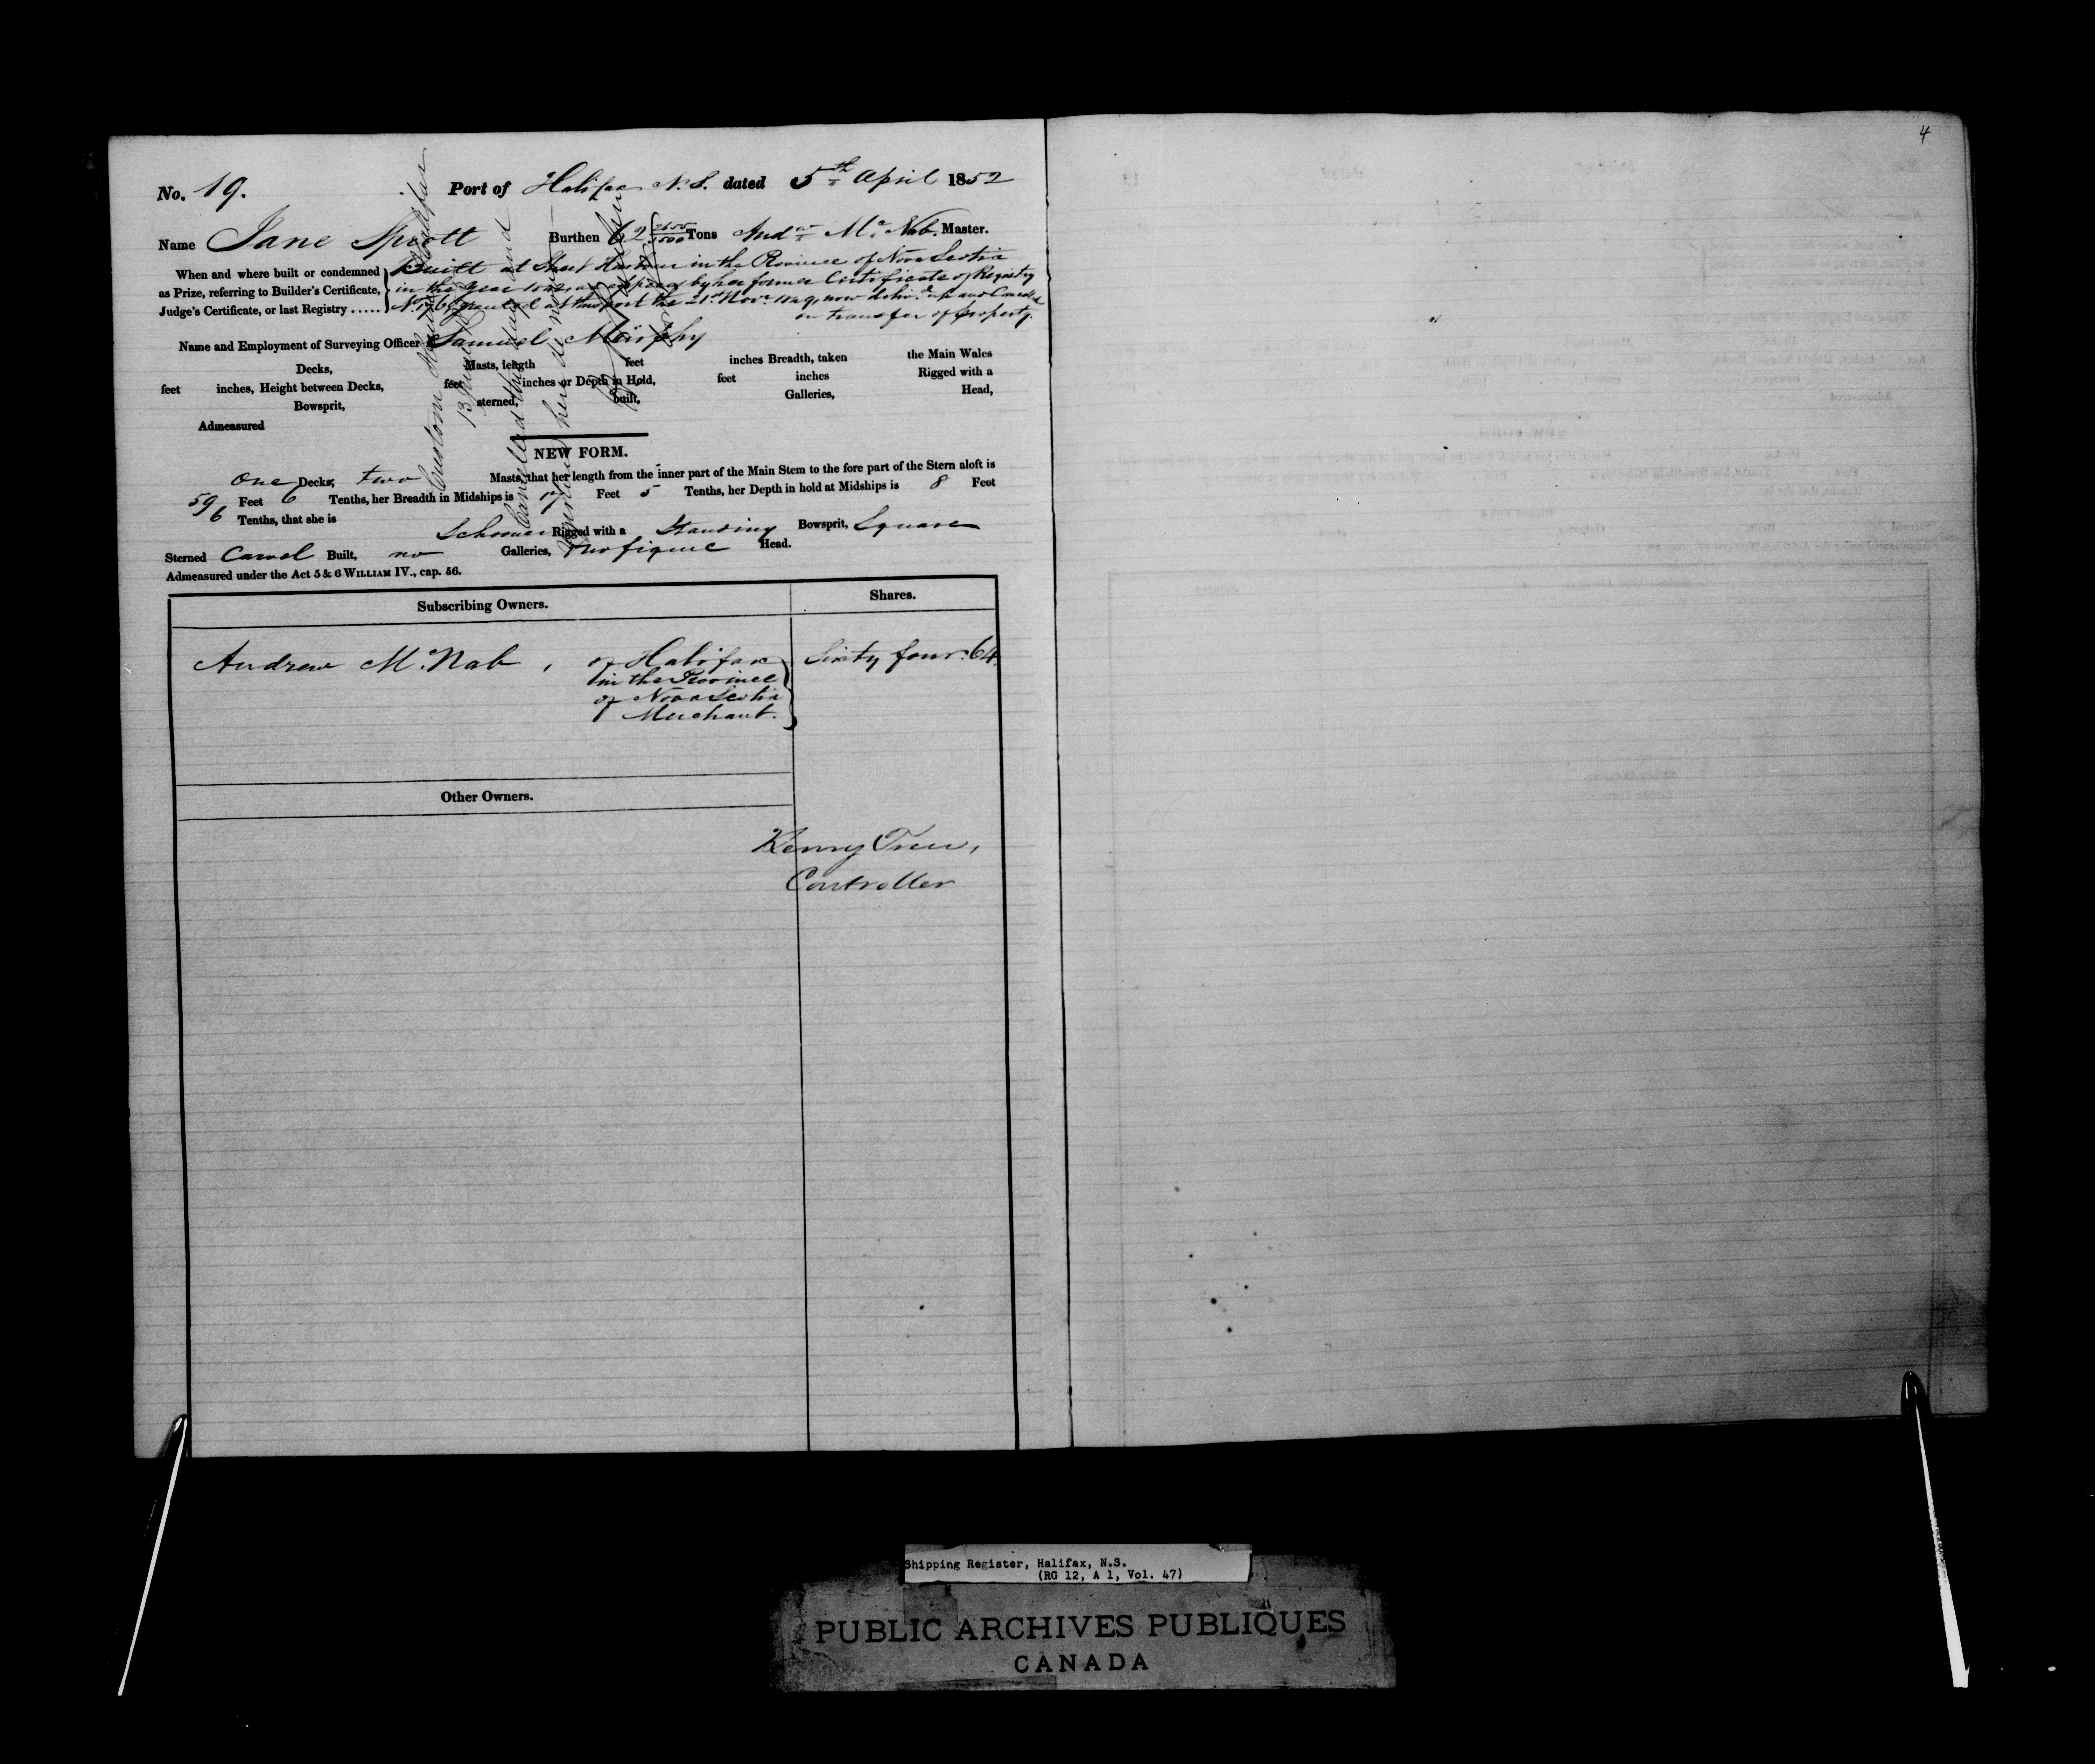 4
No. 19. Port of Halifax N.S. dated 5th April 1852
Name Jane Sprott Burthen 62 2655/3500 Tons Andw McNab. Master.
When and where built or condemned
as Prize, referring to Builder's Certificate,
Judge's Certificate, or last Registry .....
Built at Sheet Harbour in the Province of Nova Scotia
in the year as appears by her former Certificate of Registry
granted at this port the 21st Novr 1849, now delivd up and Cancelled
on transfer of property.
Name and Employment of Surveying Officer Samuel Murphy
Decks, Masts, length feet inches Breadth, taken the Main Wales
feet inches, Height between Decks, feet inches or Depth in Hold, feet inches Rigged with a
Bowsprit, sterned, built, Galleries, Head,
Admeasured
NEW FORM.
one Decks, two Masts, that her length from the inner part of the Main Stem to the fore part of the Stern aloft is
59 Feet 6 Tenths, her Breadth in Midships is 17 Feet 5 Tenths, her Depth in hold at Midships is 8 Feet
6 Tenths, that she is Schooner Rigged with a Standing Bowsprit, Square
Sterned Carvel Built, no Galleries, no figure Head.
Admeasured under the Act 5 & 6 WILLIAM IV., cap. 56.
Custom House Halifax
13
Cancelled this day and
Subscribing Owners. Shares.
Andrew McNab, of Halifax Sixty four. 64.
in the Province
of Nova Scotia
Merchant.
Other Owners.
Henry Trew,
Controller
Shipping Register, Halifax, N.S.
(RG 12, A 1, Vol. 47)
PUBLIC ARCHIVES PUBLIQUES
CANADA